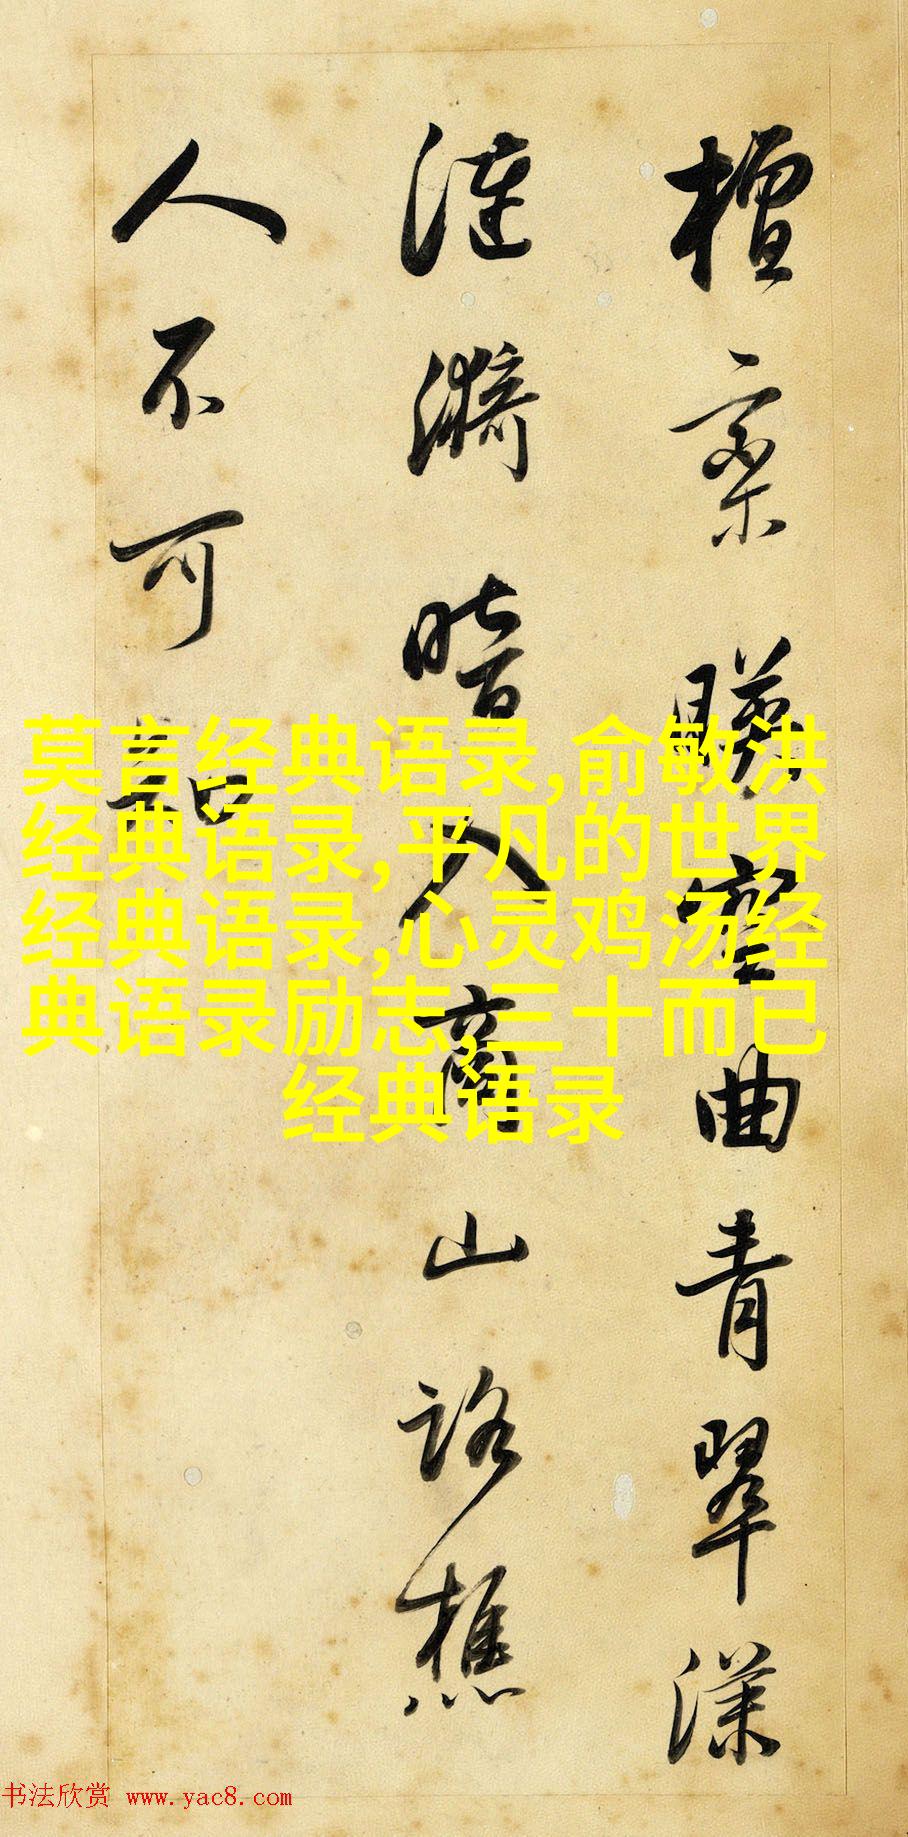 檀栾暎空曲青翠漾
漣漪暗入商山路樵
人不可知
莫言经典语录,俞敏洪
经典语录,平凡的世界
经典语录,心灵鸡汤经
典语录励志,三十而已
经典语录
书法欣赏 www.yac8.com